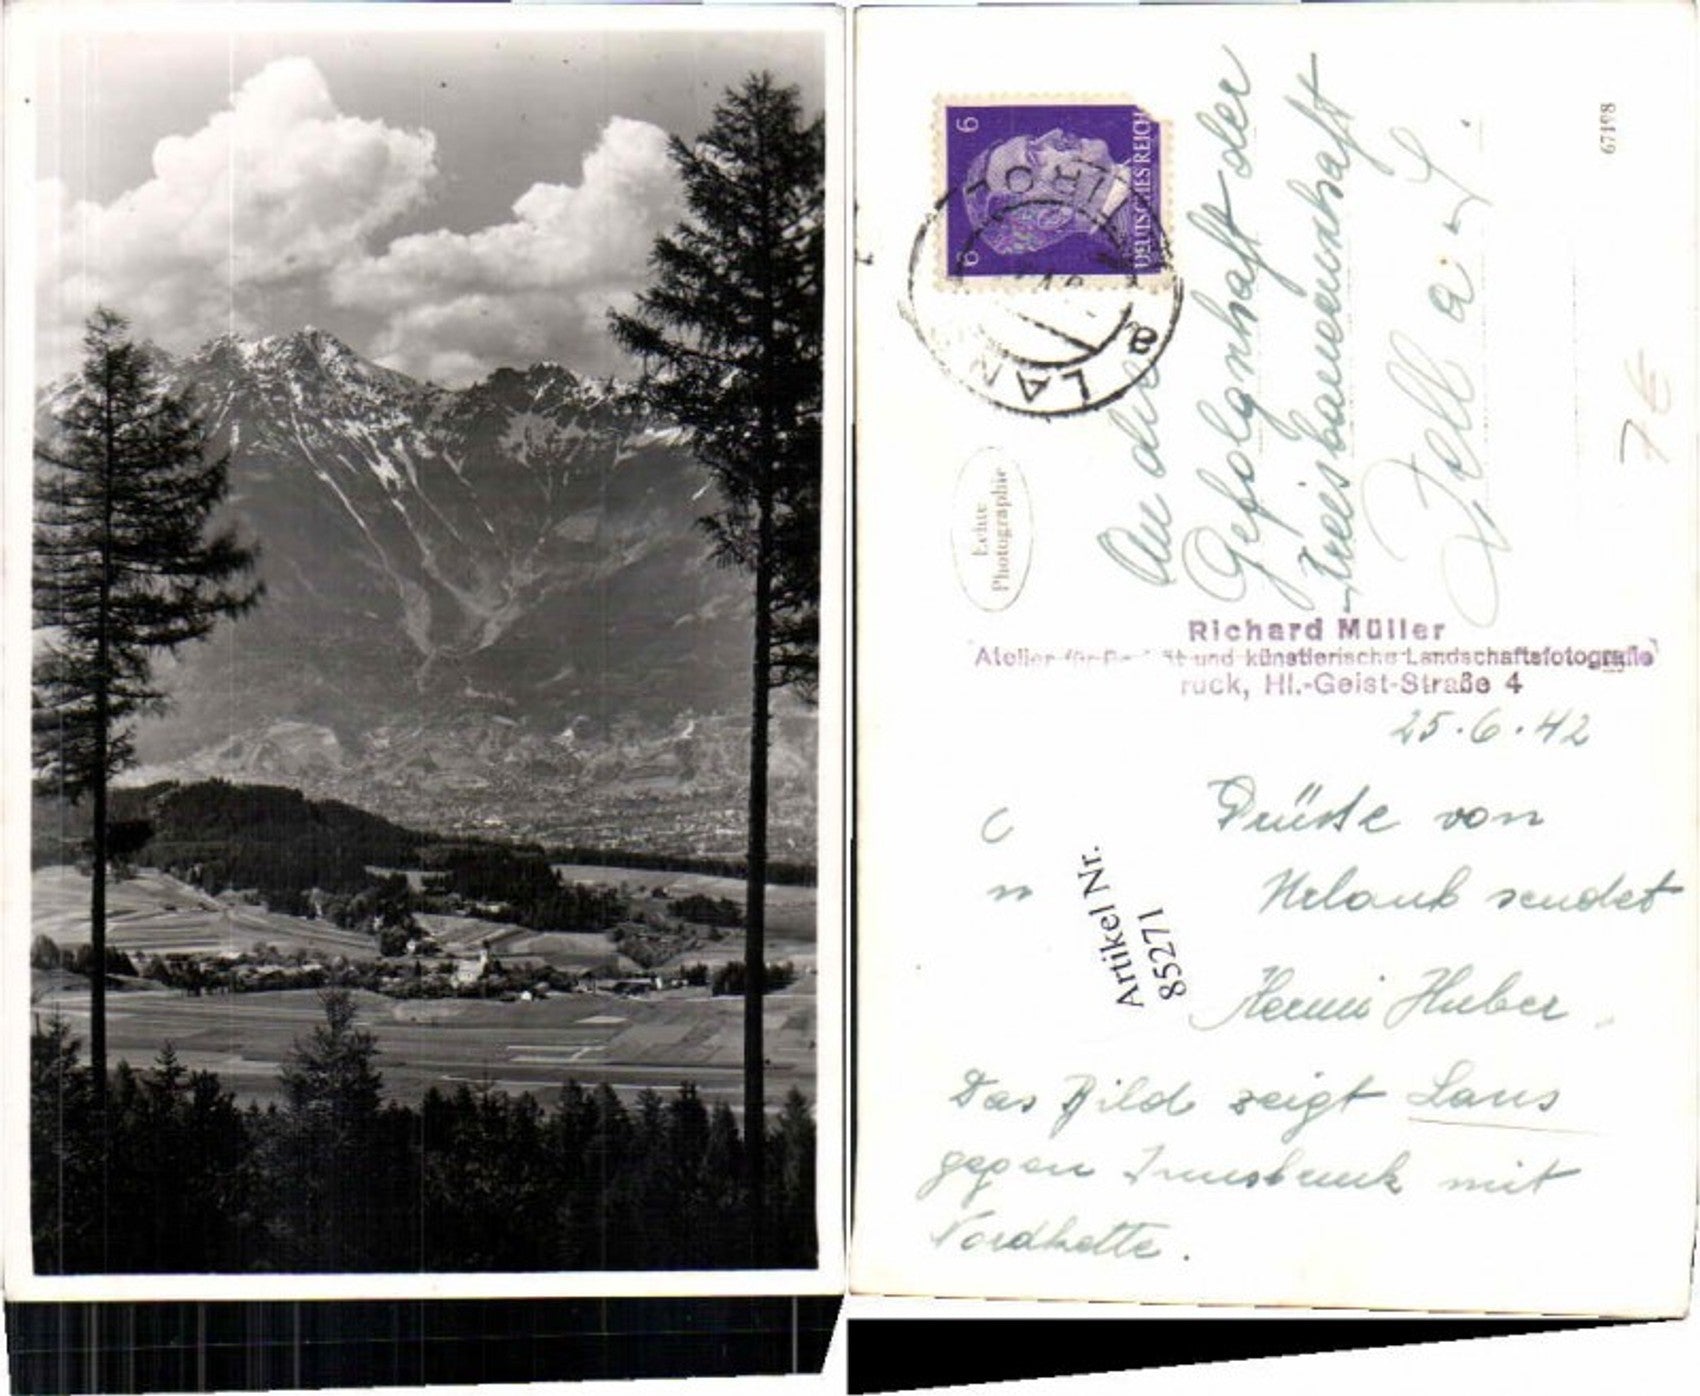 6
6
DEUTSCHES REICH
TIROL
LAN
a
67198
An die
Gefolgschaft der
Kreisbauernschaft
Zell a. S.
7€
Echte
Photographie
Richard Müller
Atelier für und künstlerische Landschaftsfotografie
ruck, Hl.-Geist-Straße 4
25.6.42
Grüße von
Urlaub sendet
Hermi Huber.
Artikel Nr.
85271
Das Bild zeigt Lans
gegen Innsbruck mit
Nordkette.